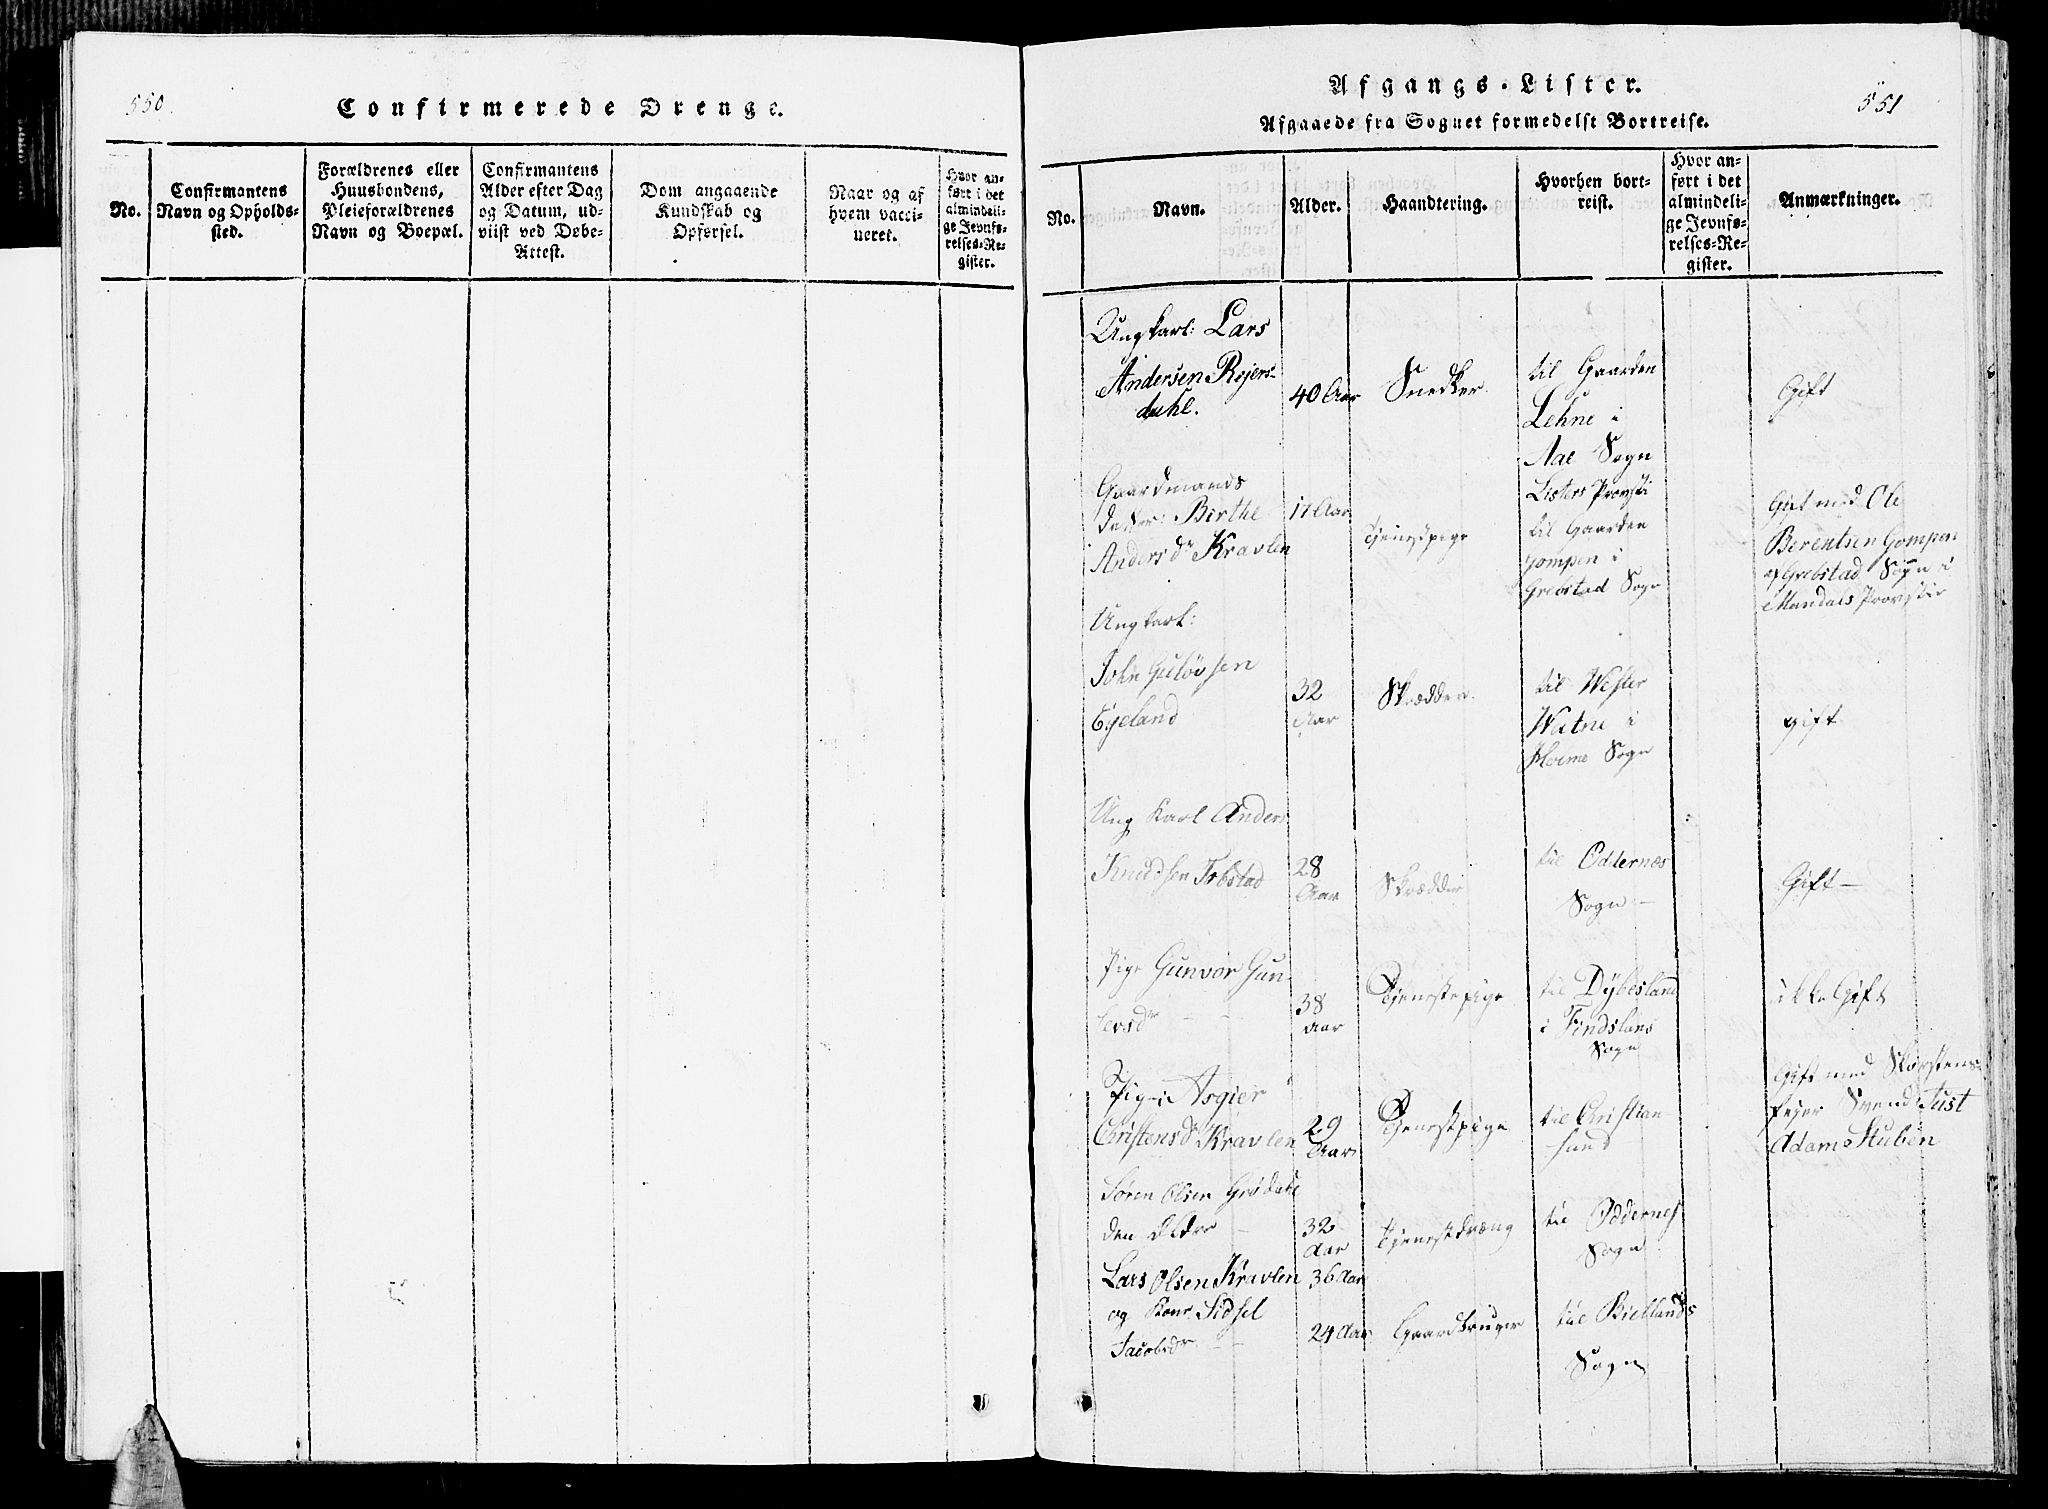 550.
Confirmerede Drenge.
No.
Confirmantens
Navn og Opholds-
sted.
Forældrenes eller
Huusbondens,
Pleieforældrenes
Navn og Boepæl.
Confirmantens
Alder efter Dag
og Datum, ud-
viist ved Døbe-
Attest.
Dom angaaende
Kundskab og
Opførsel.
Naar og af
hvem vacci-
neret.
Hvor an-
ført i det
almindeli-
ge Jevnfø-
relses-Re-
gister.
Afgangs-Lister.
551
Afgaaede fra Sognet formedelst Bortreise.
No.
Navn.
Alder.
Haandtering.
Hvorhen bort-
reist.
Hvor an-
ført i det
almindeli-
ge Jevnfø-
relses-Re-
gister.
Anmærkninger.
Ungkarl: Lars
Andersen Rejers-
dahl.
40 Aar
Snedker.
til Gaarden
Lehne i
Aae Sogn
Listers Provsti
Gift
Gaardmands
datter: Birthe
Anders dr Kravlen
17 Aar
Tjenestpige
til Gaarden
Gompen i
Grebstad Sogn
Gift med Ole
Berentsen Gompen
af Grebstad Sogn i
Mandals Provstie
Ungkarl:
John Guløvsen
Egeland
32
Aar
Skrædder.
til Wester
Watne i
Holme Sogn
gift
Ung Karl Anders
Knudsen Tobstad
28
Aar
Skrædder
til Oddernæs
Sogn -
Gift -
Pige Gunvor Gun
lersdr - -
38
Aar
Tjenestepige
til Dybesland
i Findslans
Sogn
ikke Gift
Pige: Asgier
Christensdr Kravlen
29
Aar
Tjenestpige
til Christian-
sund
Gift med Skorstens-
fejer Svend Just
Adam Stuben
Søren Olsen Grødahl
den Eldre -
32
Aar
Tjenestdræng
til Oddernes
Sogn
Lars Olsen Kravlen
og Kone Sidsel
Jacobsdr - -
36 Aar
24 Aar
Gaardbruger
til Biellands
Sogn